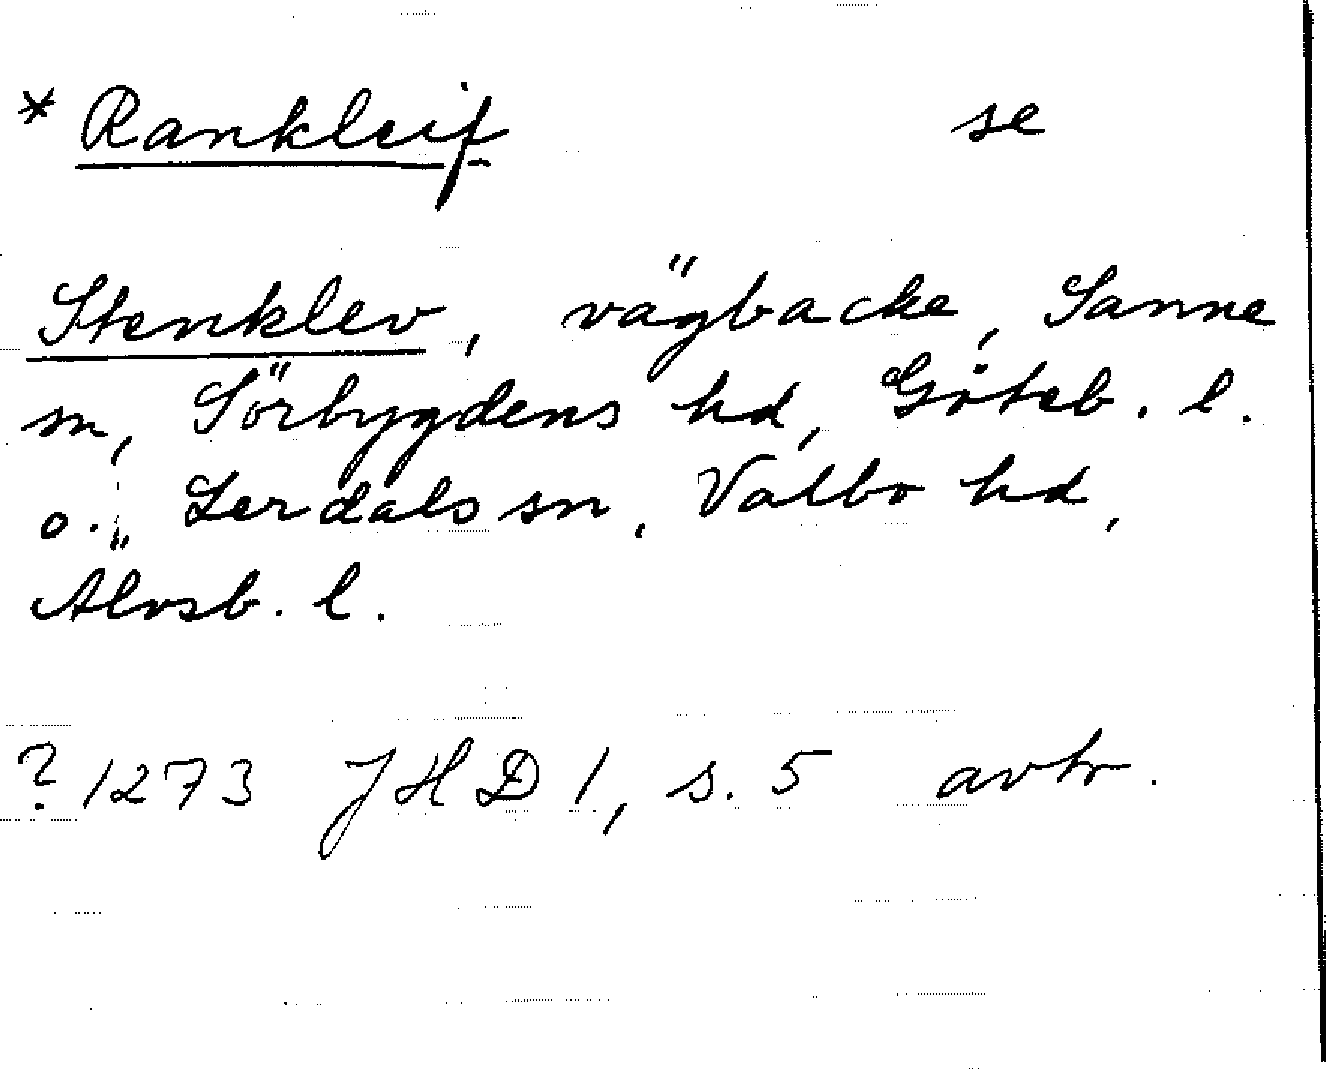 * Rankleif se
Stenklev, vägbacke, Sanne
sn, Sörbygdens hd, Göteb. l.
o. Lerdals sn, Valbo hd,
Älvsb. l.
? 1273 JHD 1, s. 5 avtr.